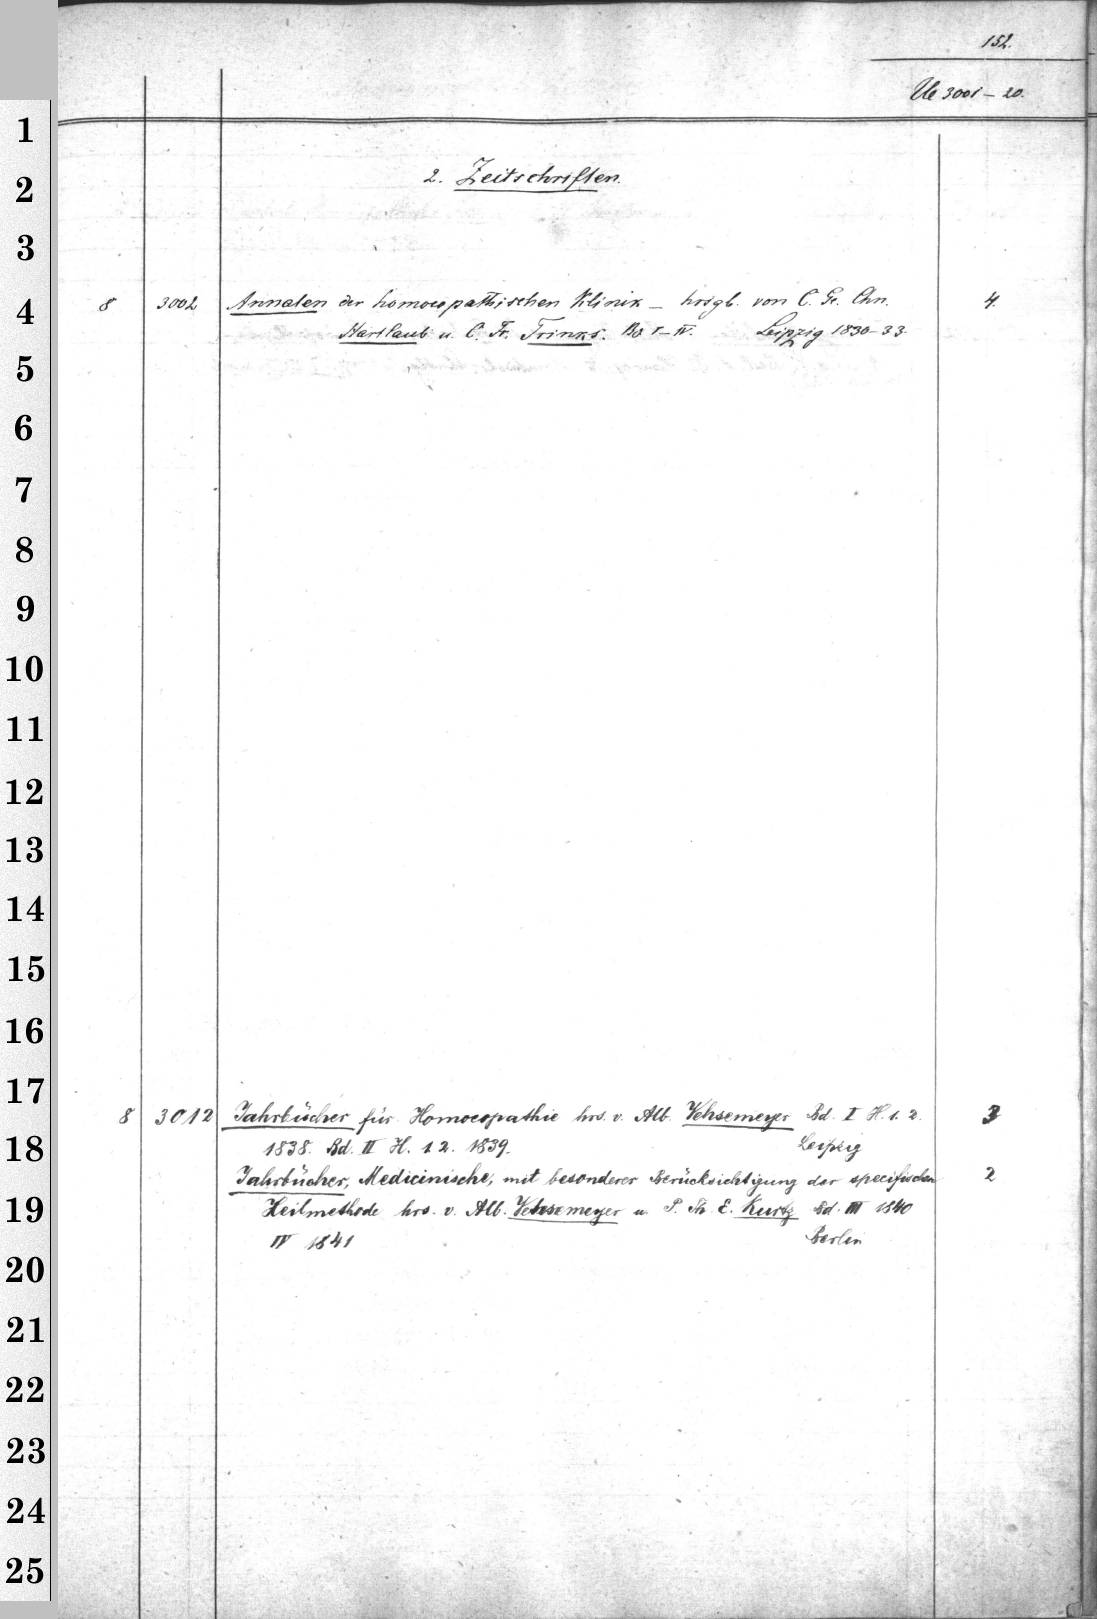 152.
Ue 3001-20.
1
2
3
4
5
6
7
8
9
10
11
12
13
14
15
16
17
18
19
20
21
22
23
24
25
2. Zeitschriften.
8 3002 Annalen der homoeopathischen Klinik - hrsgb. von C. Ge. Chn. 4.
Hartlaub u. C. Fr. Trinks. Bd I-IV. Leipzig 1830-33
8 3012 Jahrbücher für Homoeopathie hrs. v. Alb. Vehsemeyer Bd. I H. 1. 2. 3
1838. Bd. II H. 1 2. 1839. Leipzig
Jahrbücher, Medicinische, mit besonderer Berücksichtigung der specifischen 2
Heilmethode hrs. v. Alb. Vehsemeyer u. P. Th. E. Kurtz Bd. III 1840
IV 1841 Berlin